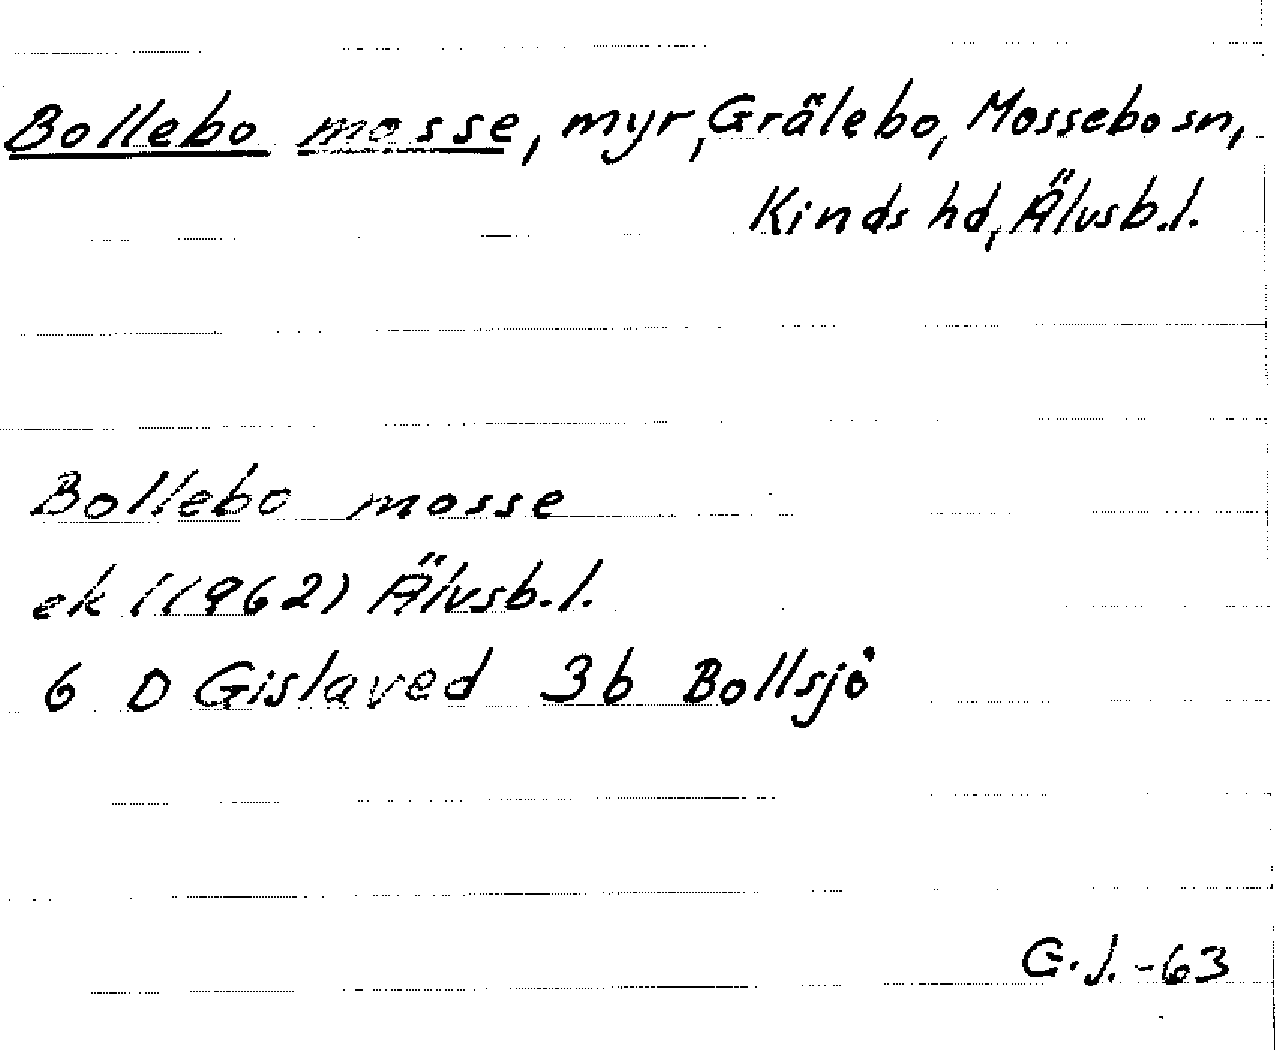 Bollebo mosse, myr, Grälebo, Mossebo sn,
Kinds hd, Älvsb.l.
Bollebo mosse
ek (1962) Älvsb.l.
6 D Gislaved 3b Bollsjö
G.J.-63